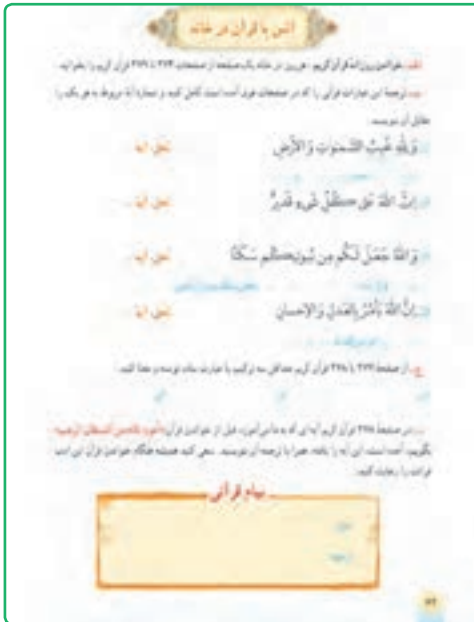 انس با قرآن در خانه
الف. خواندن روزانه قرآن کریم: هر روز در خانه یک صفحه از صفحات ۲۷۳ تا ۲۷۹ قرآن کریم را بخوانید.
ب. ترجمهٔ این عبارات قرآنی را که در صفحات فوق آمده است کامل کنید و شمارهٔ آیهٔ مربوط به هر یک را
مقابل آن بنویسید.
وَ لِلّٰهِ غَیبُ السَّمٰوٰتِ وَ الاَرضِ نحل، آیهٔ
اِنَّ اللهَ عَلیٰ کُلِّ شَیءٍ قَدیرٌ نحل، آیهٔ
وَ اللهُ جَعَلَ لَکُم مِن بُیوتِکُم سَکَنًا نحل، آیهٔ
اِنَّ اللهَ یَأمُرُ بِالعَدلِ وَ الاِحسانِ نحل، آیهٔ
ج. از صفحهٔ ۲۷۳ تا ۲۷۸ قرآن کریم حداقل سه ترکیب یا عبارت ساده نوشته و معنا کنید.
در صفحهٔ ۲۷۸ قرآن کریم آیه ای که به ما می آموزد، قبل از خواندن قرآن «اعوذ بالله من الشیطان الرجیم»
بگوییم، آمده است. این آیه را یافته، همراه با ترجمه آن بنویسید. سعی کنید همیشه هنگام خواندن قرآن این ادب
قرائت را رعایت کنید.
پیام قرآنی
آیه
ترجمه